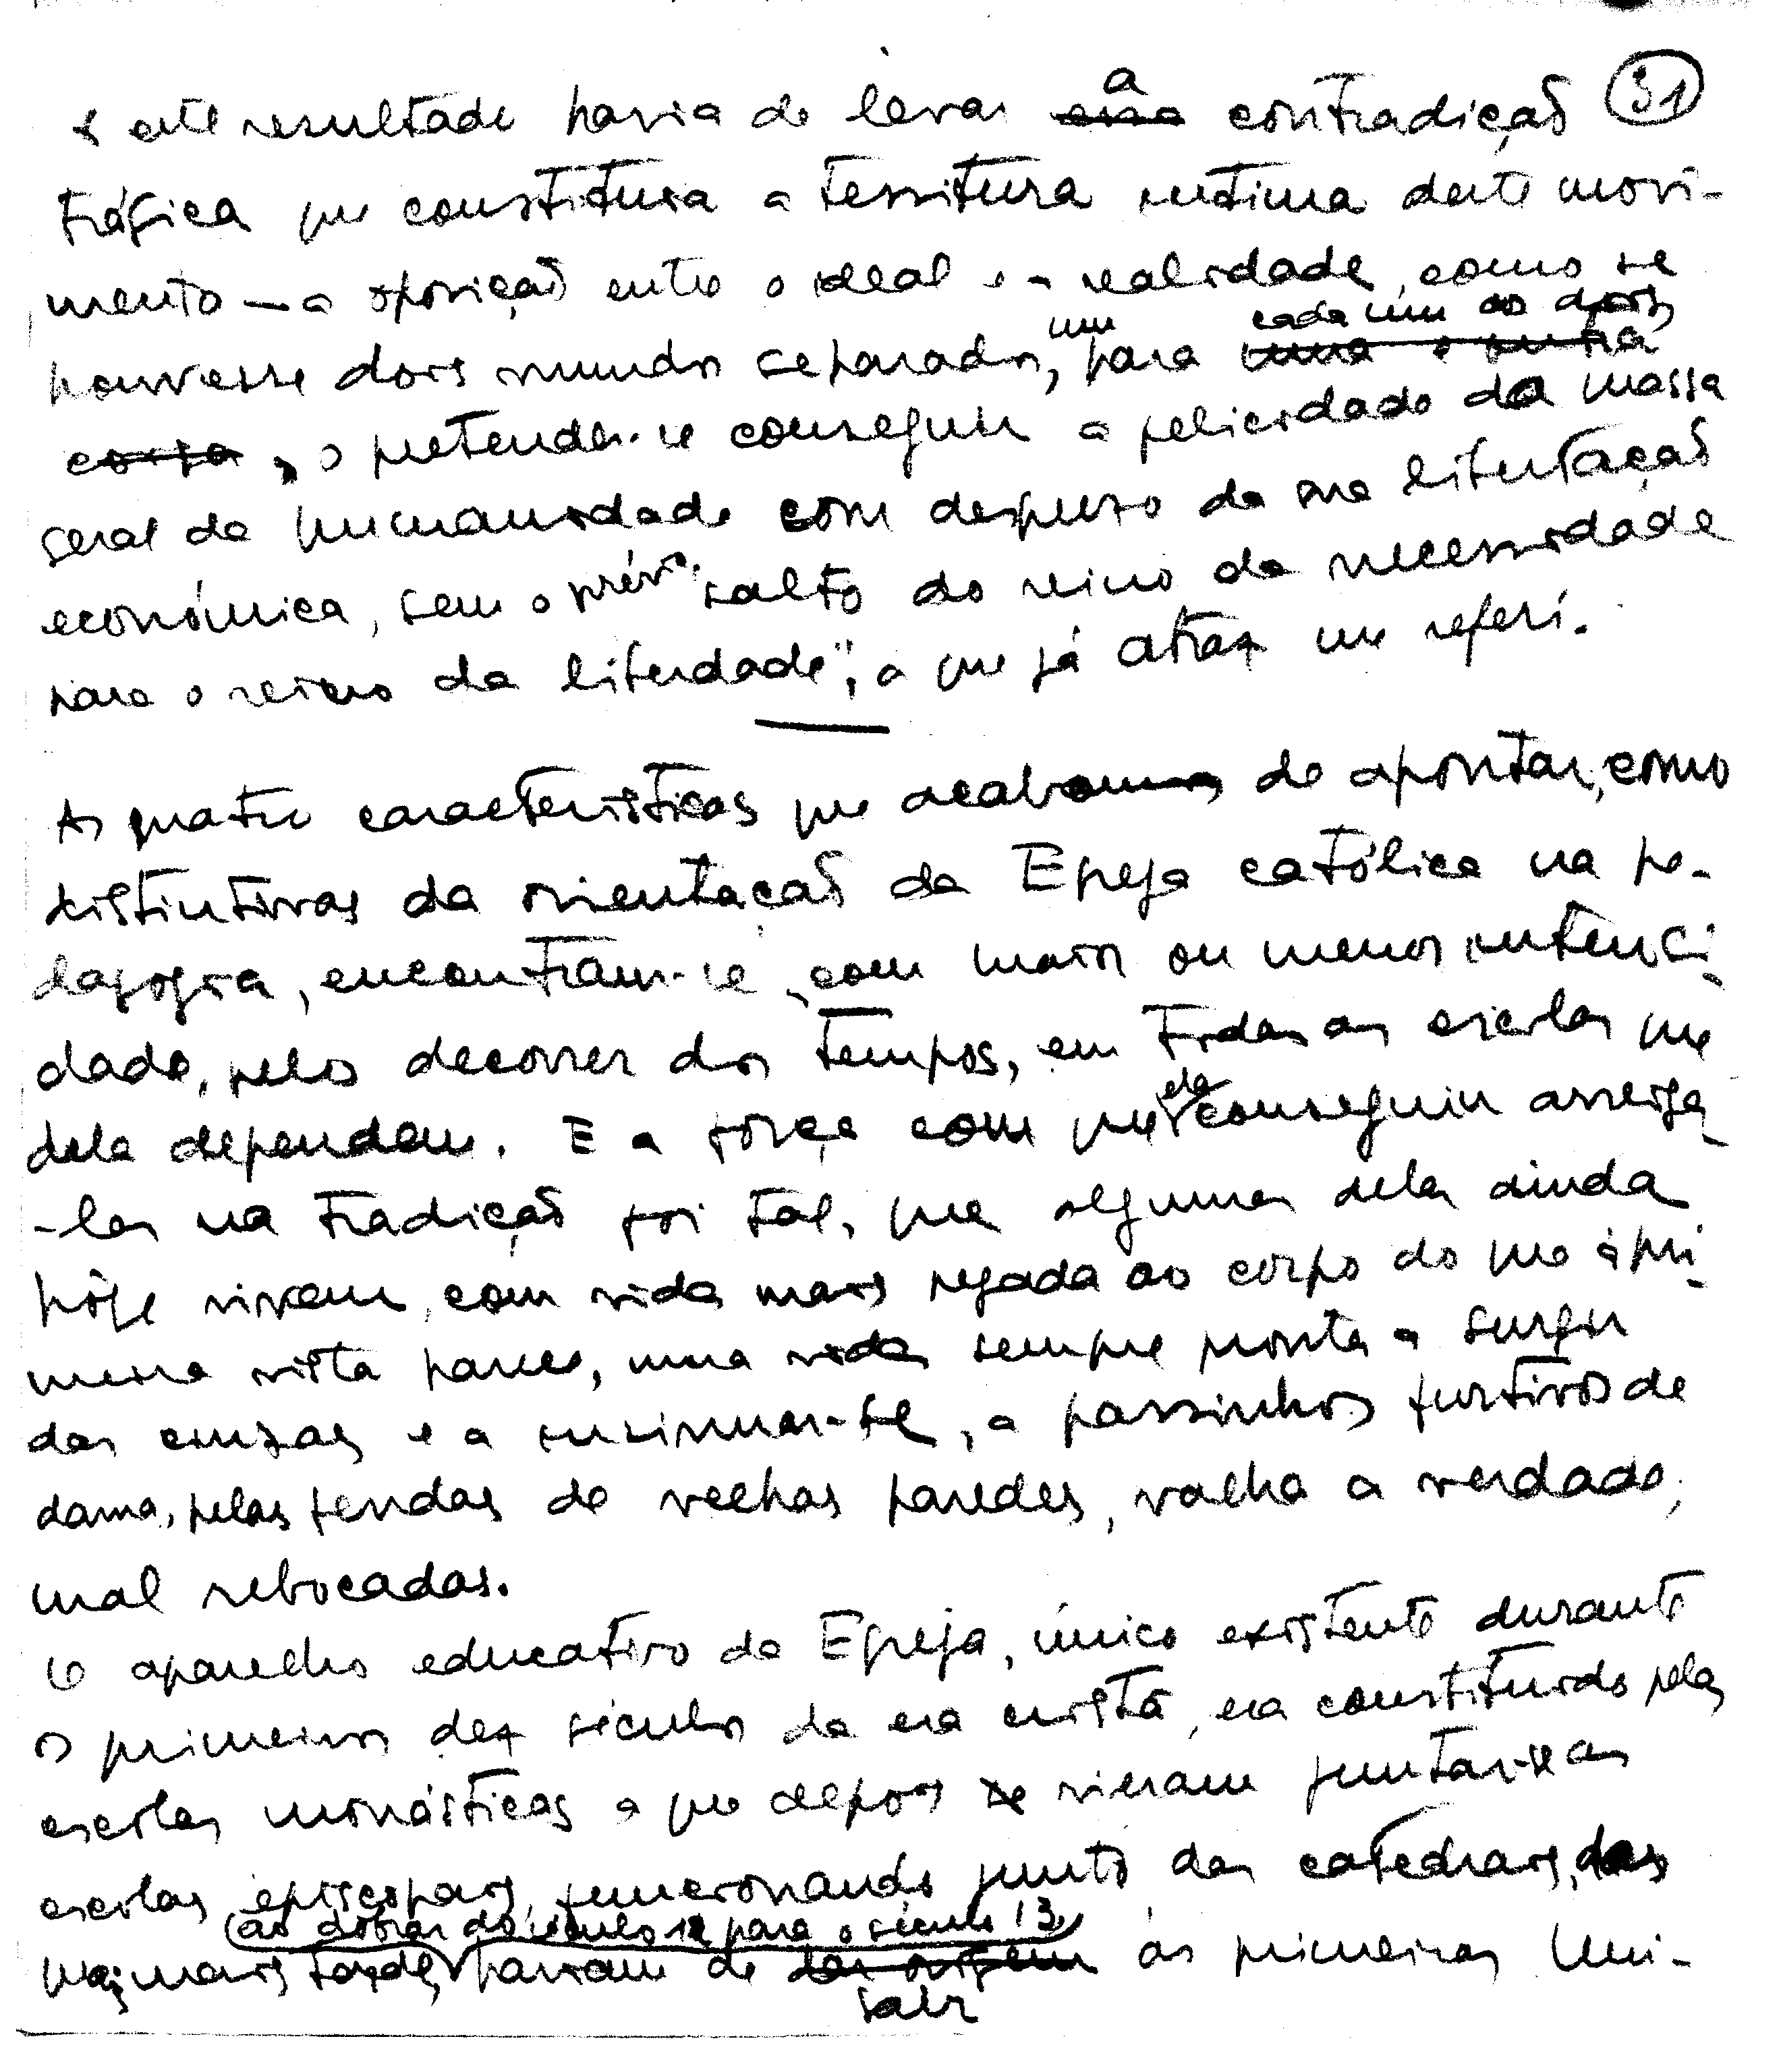 e este resultado havia de levar a ~~essa~~ contradição 31
trágica que constituia a tessitura intima deste movi-
mento — a oposição entre o ideal e a realidade, como se
houvesse dois mundos separados, um para cada um dos dois, ~~uma e outra~~
~~coisa~~, o pretender-se conseguir a felicidade da massa
geral da humanidade com desprezo da sua libertação
económica, sem o prévio salto do reino da necessidade
para o reino da liberdade", a que já atraz me referi.
As quatro características que acabamos de apontar, como
distintivas da orientação da Egreja católica na pe-
dagogia, encontram-se, com maior ou menor intenci-
dade, pelo decorrer dos tempos, em todas as escolas que
dela dependem. E a força com que ela conseguiu arreiga-
-las na tradição foi tal, que algumas delas ainda
hôje vivem, com vida mais pegada ao corpo do que á pri-
meira vista parece, uma vida sempre pronta a surgir
das cinzas e a insinuar-se, a passinhos furtivos de
dama, pelas fendas de velhas paredes, valha a verdade,
mal rebocadas.
O aparelho educativo da Egreja, único existente durante
os primeiros dez séculos da era cristã, era constituido pelas
escolas monásticas a que depois ~~se~~ vieram juntar-se as
escolas episcopais, funcionando junto das catedrais, das
quais mais tarde, ao dobrar do século 12 para o século 13, haviam de ~~dar origem~~ sair as primeiras Uni-